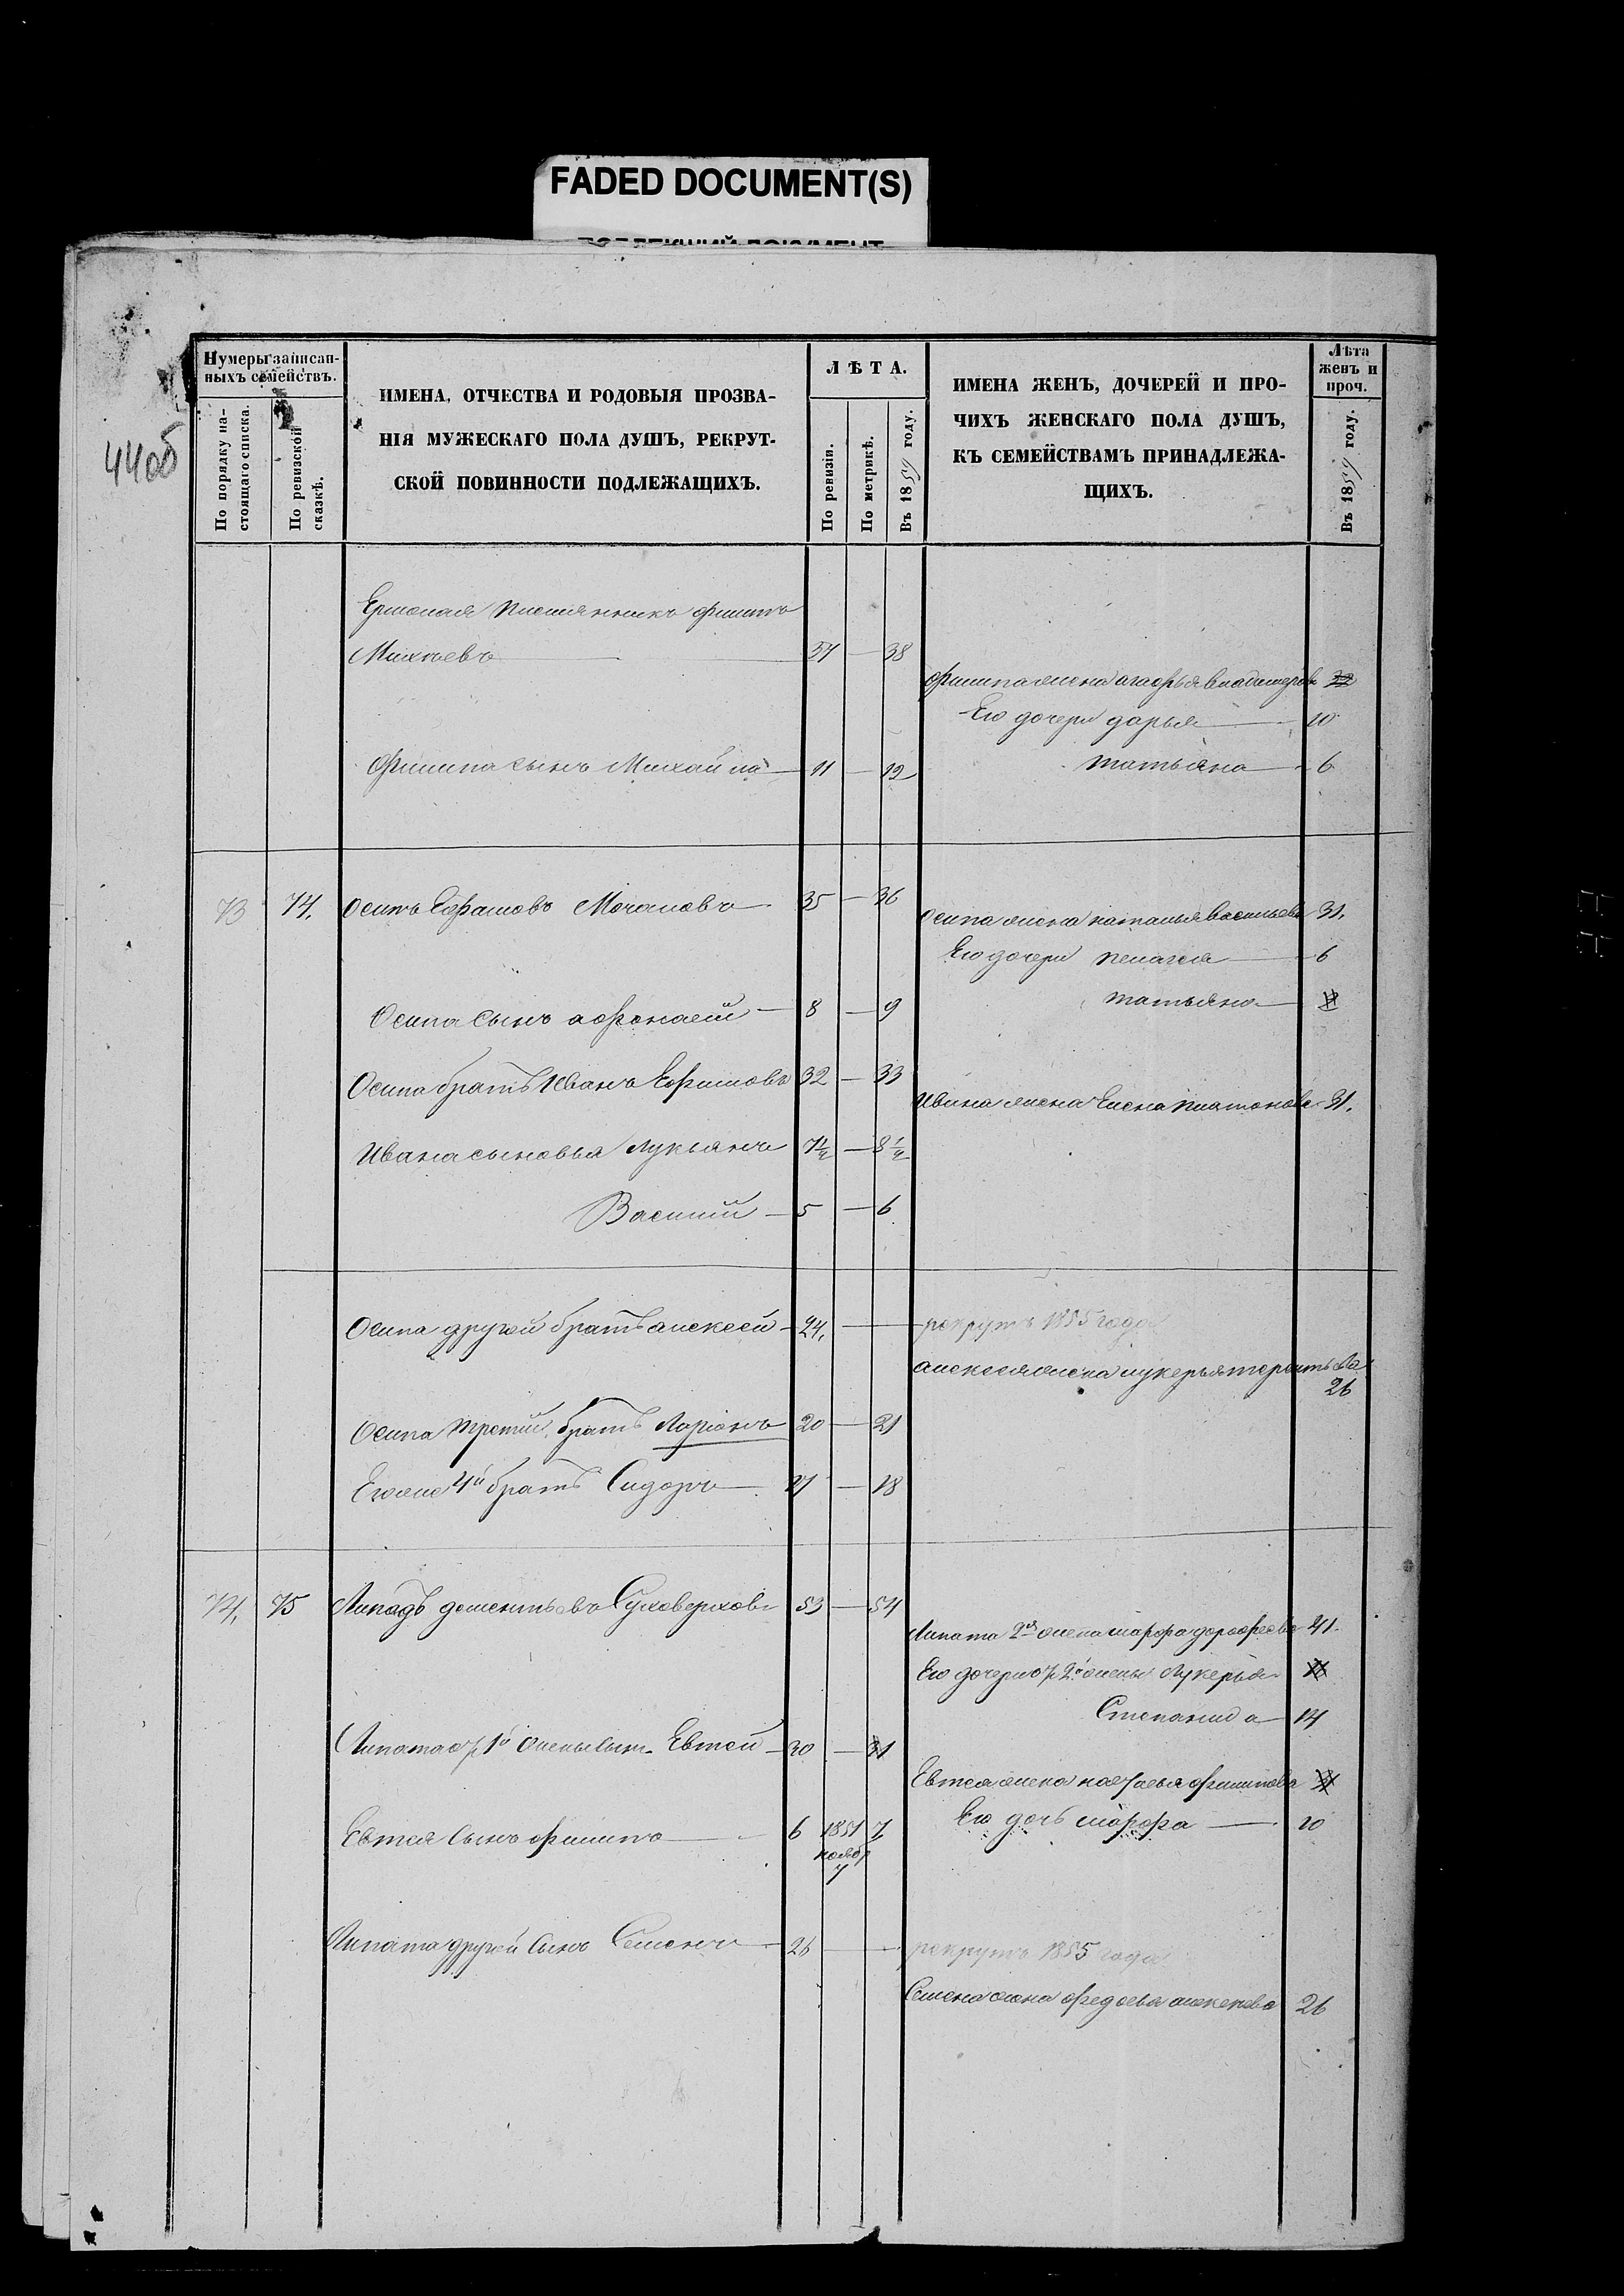 FADED DOCUMENT(S)
44об
Нумеры записан-
ныхъ семействъ.
По порядку на-
стоящаго списка.
По ревизской
сказкѣ.
ИМЕНА, ОТЧЕСТВА И РОДОВЫЯ ПРОЗВА-
НІЯ МУЖЕСКАГО ПОЛА ДУШЪ, РЕКРУТ-
СКОЙ ПОВИННОСТИ ПОДЛЕЖАЩИХЪ.
ЛѢТА.
По ревизіи.
По метрикѣ.
Въ 1859 году.
ИМЕНА ЖЕНЪ, ДОЧЕРЕЙ И ПРО-
ЧИХЪ ЖЕНСКАГО ПОЛА ДУШЪ,
КЪ СЕМЕЙСТВАМЪ ПРИНАДЛЕЖА-
ЩИХЪ.
Лѣта
женъ и
проч.
Въ 1859 году.
Ермолая племянникъ филипъ
Михѣевъ — 37 — 38
филипа жена агафья владимерова
Его дочери дарья — 10
Филипа сынъ Михайла — 11 — 12
татьяна — 6
73 74. Осипъ Ефимовъ Мочаловъ — 35 — 36
осипа жена наталья васильева 31.
Его дочери пелагея — 6
татьяна —
Осипа сынъ афонасей — 8 — 9
Осипа братъ Иванъ Ефимовъ 32 — 33
Ивана жена Елена платонова 31.
Ивана сыновья Лукьянъ 7½ — 8½
Василий — 5 — 6
Осипа другой братъ алексей — 24. —
рекрутъ 1855 года
алексея жена лукерья терентьева
26
Осипа третий братъ Ларіонъ 20 — 21
Его же 4й братъ Сидоръ — 17 — 18
74. 75 Липатъ дементьевъ Суховерховъ 53 — 54
Липата 2я жена марфа дорофеева 41.
Его дочери от 2й жены Лукерья
Степанида — 14
Липата от 1й жены сынъ Евтей — 30 — 31
Евтея жена настасья филипова
Его дочь марфа — 10
Евтея сынъ филипъ — 6 1851 7
ноябр
7
Липата другой сынъ Семенъ — 26 —
рекрутъ 1855 года
Семена жена федосья 26